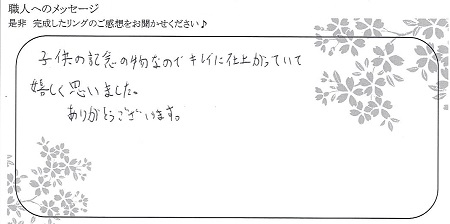 職人へのメッセージ
是非 完成したリングのご感想をお聞かせください♪
子供の記念の物なのでキレイに仕上がっていて
嬉しく思いました。
ありがとうございます。